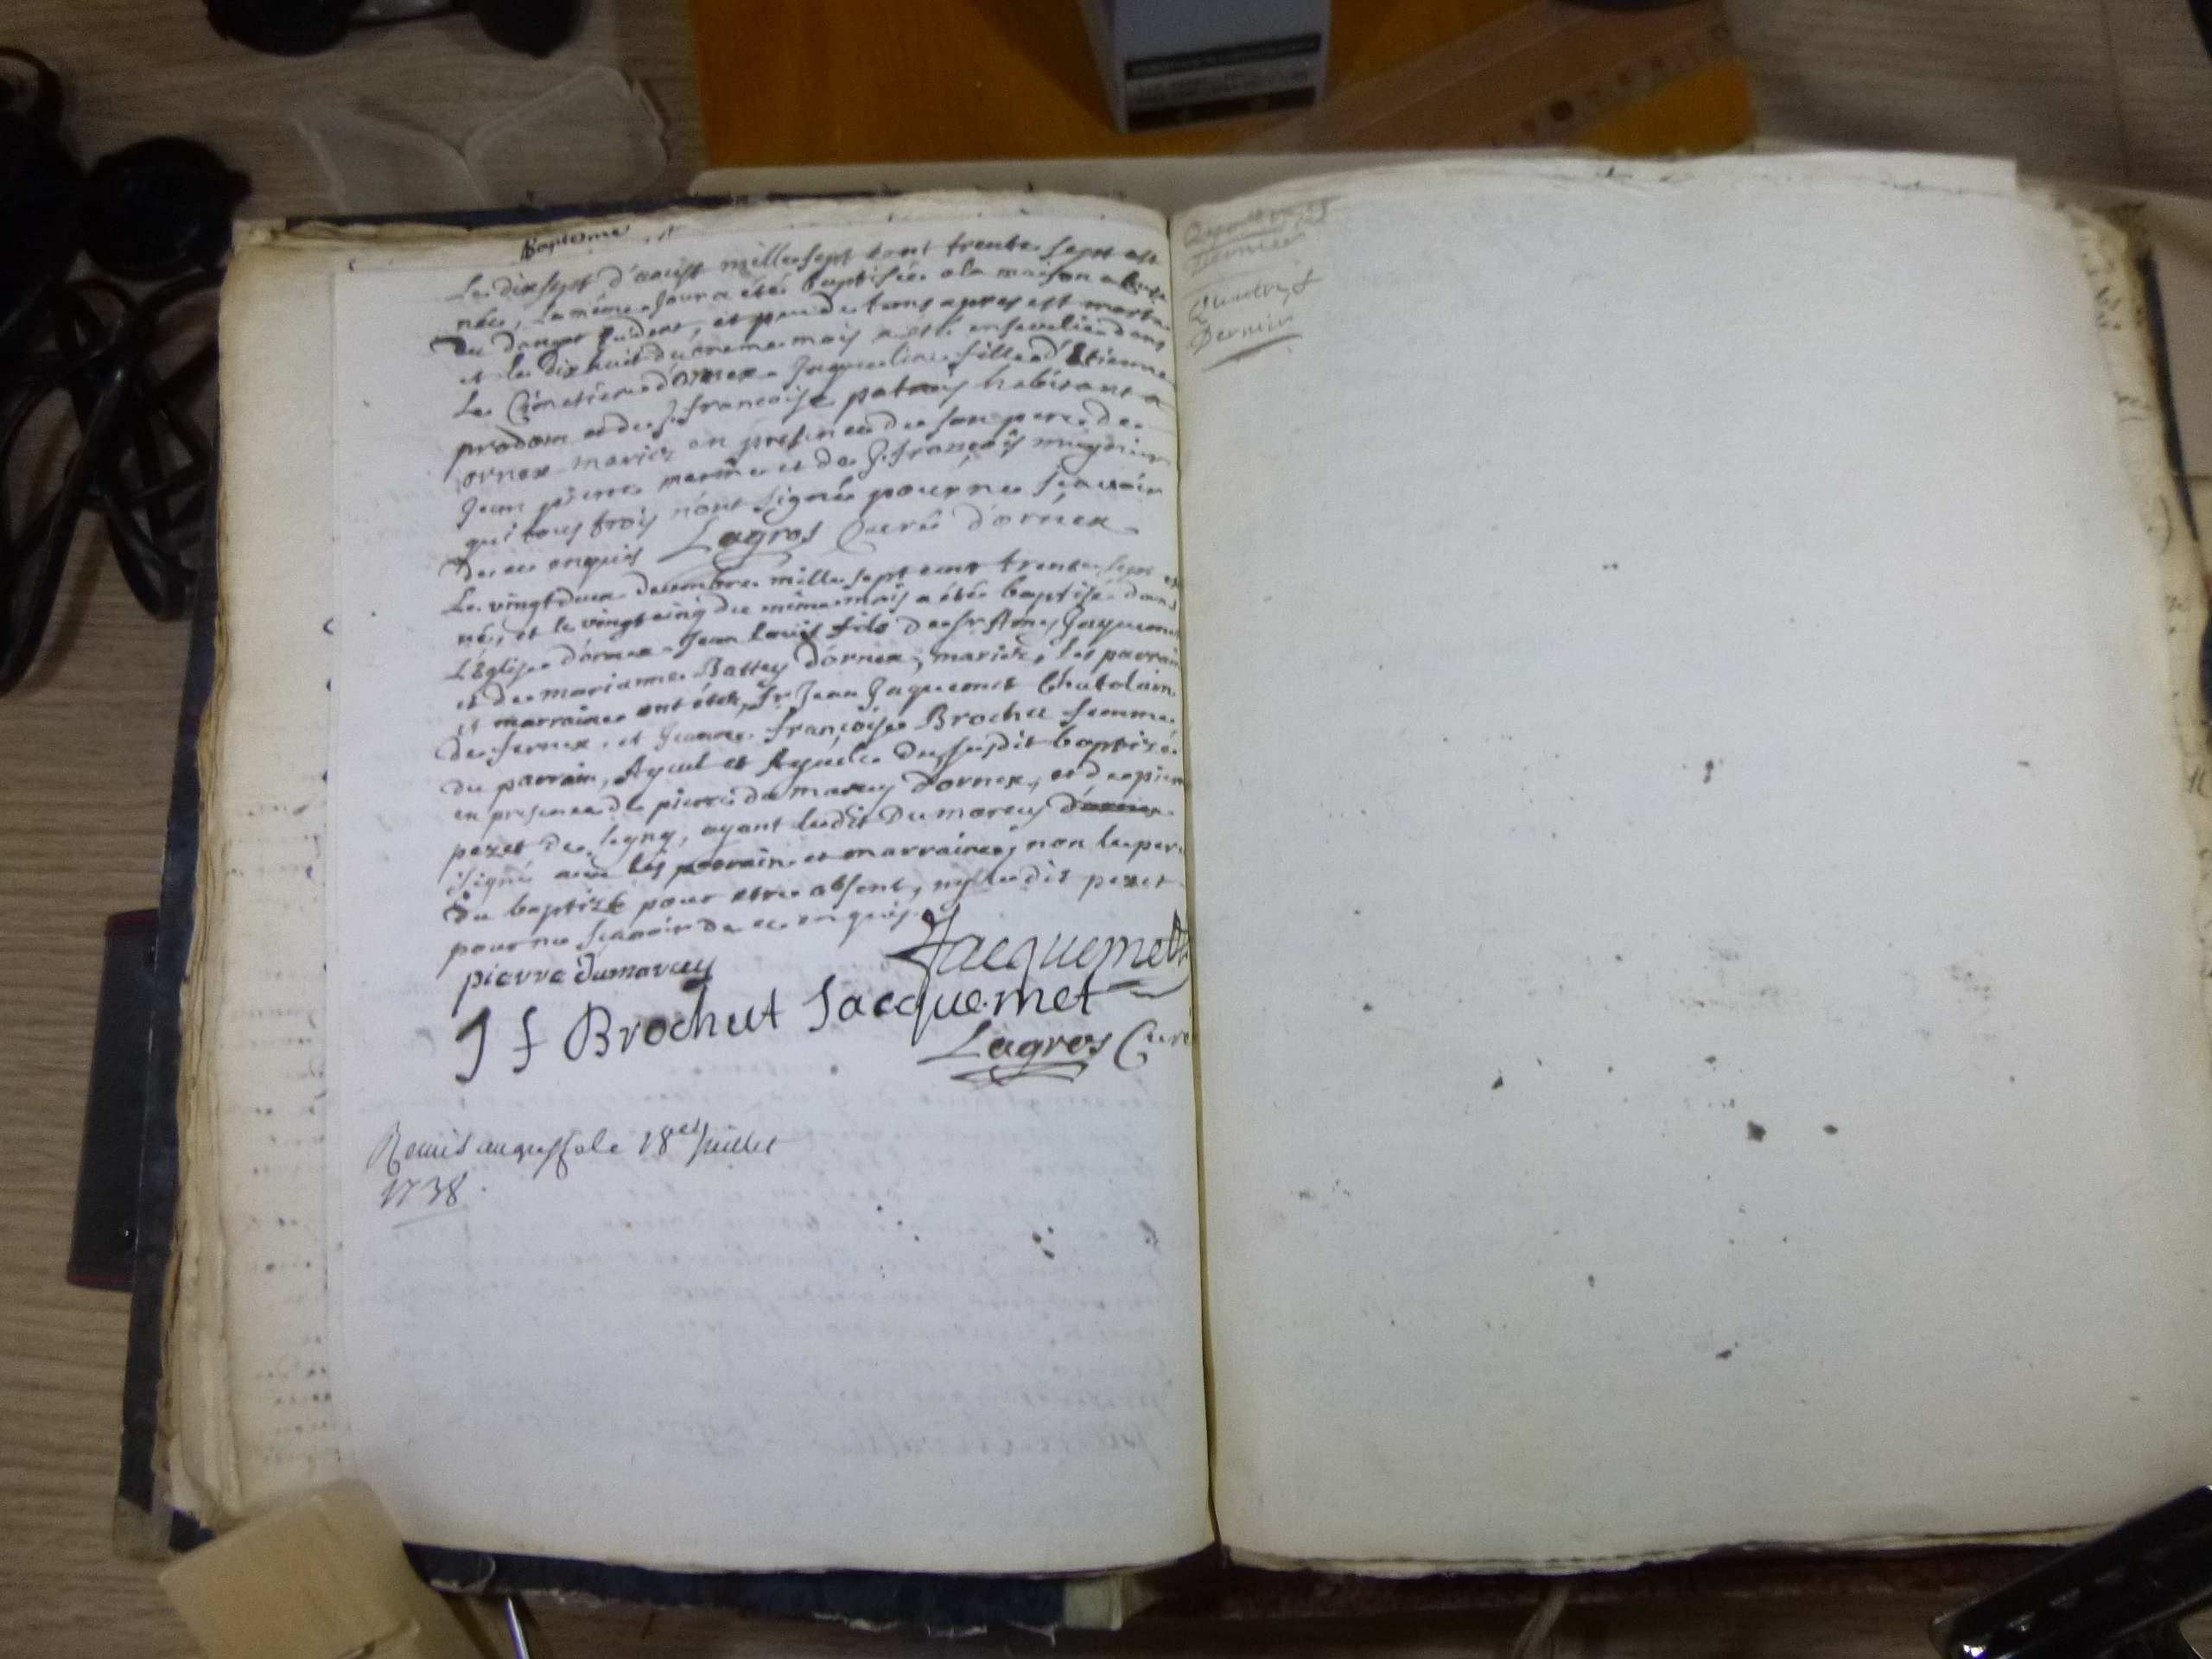 Baptême
Le dixsept d'aoust mille sept cent trente sept est
née, la même jour a étée baptisée a la maison a cause
du danger evident, et peu de tems apres est morte
et le dix huit du meme mois a eté ensevelie dans
Le Cimetiere d'ornex Jaqueline fille d'Etienne
prodom et de françoise patray habitant a
ornex mariez en presence de son pere de
Jean pierre et de J. françois
qui tous trois n'ont signés pour ne scavoir
de ce enquis Lagros Curé d'ornex
Le vingt deux decembre mille sept cent trente sept est
né, et le vingt cinq du même mois a été baptisé dans
L'Eglise d'ornex Jean Louis fils de Sr Amy Jaquemet
et de marianne Battey d'ornex, mariez, les parrain
et marraine ont étés, Sr Jean Jaquemet Chatelain
de fernex, et Jeanne françoise Brochut femme
du parrain, Ayeul et Ayeule du susdit baptisé
en presence de pierre du marcey d'ornex, et de pierre
pezet de segny, ayant ledit Du marcey
signé avec les parrain et marraine, non le pere
du baptisé pour etre absent, ny ledit pezet
pour ne scavoir de ce enquis
Jacquemet
pierre dumarcey
J f Brochut Jacquemet
Lagros Curé
Remis au greffe le 18e Juillet
1738.
Dernier
Dernier